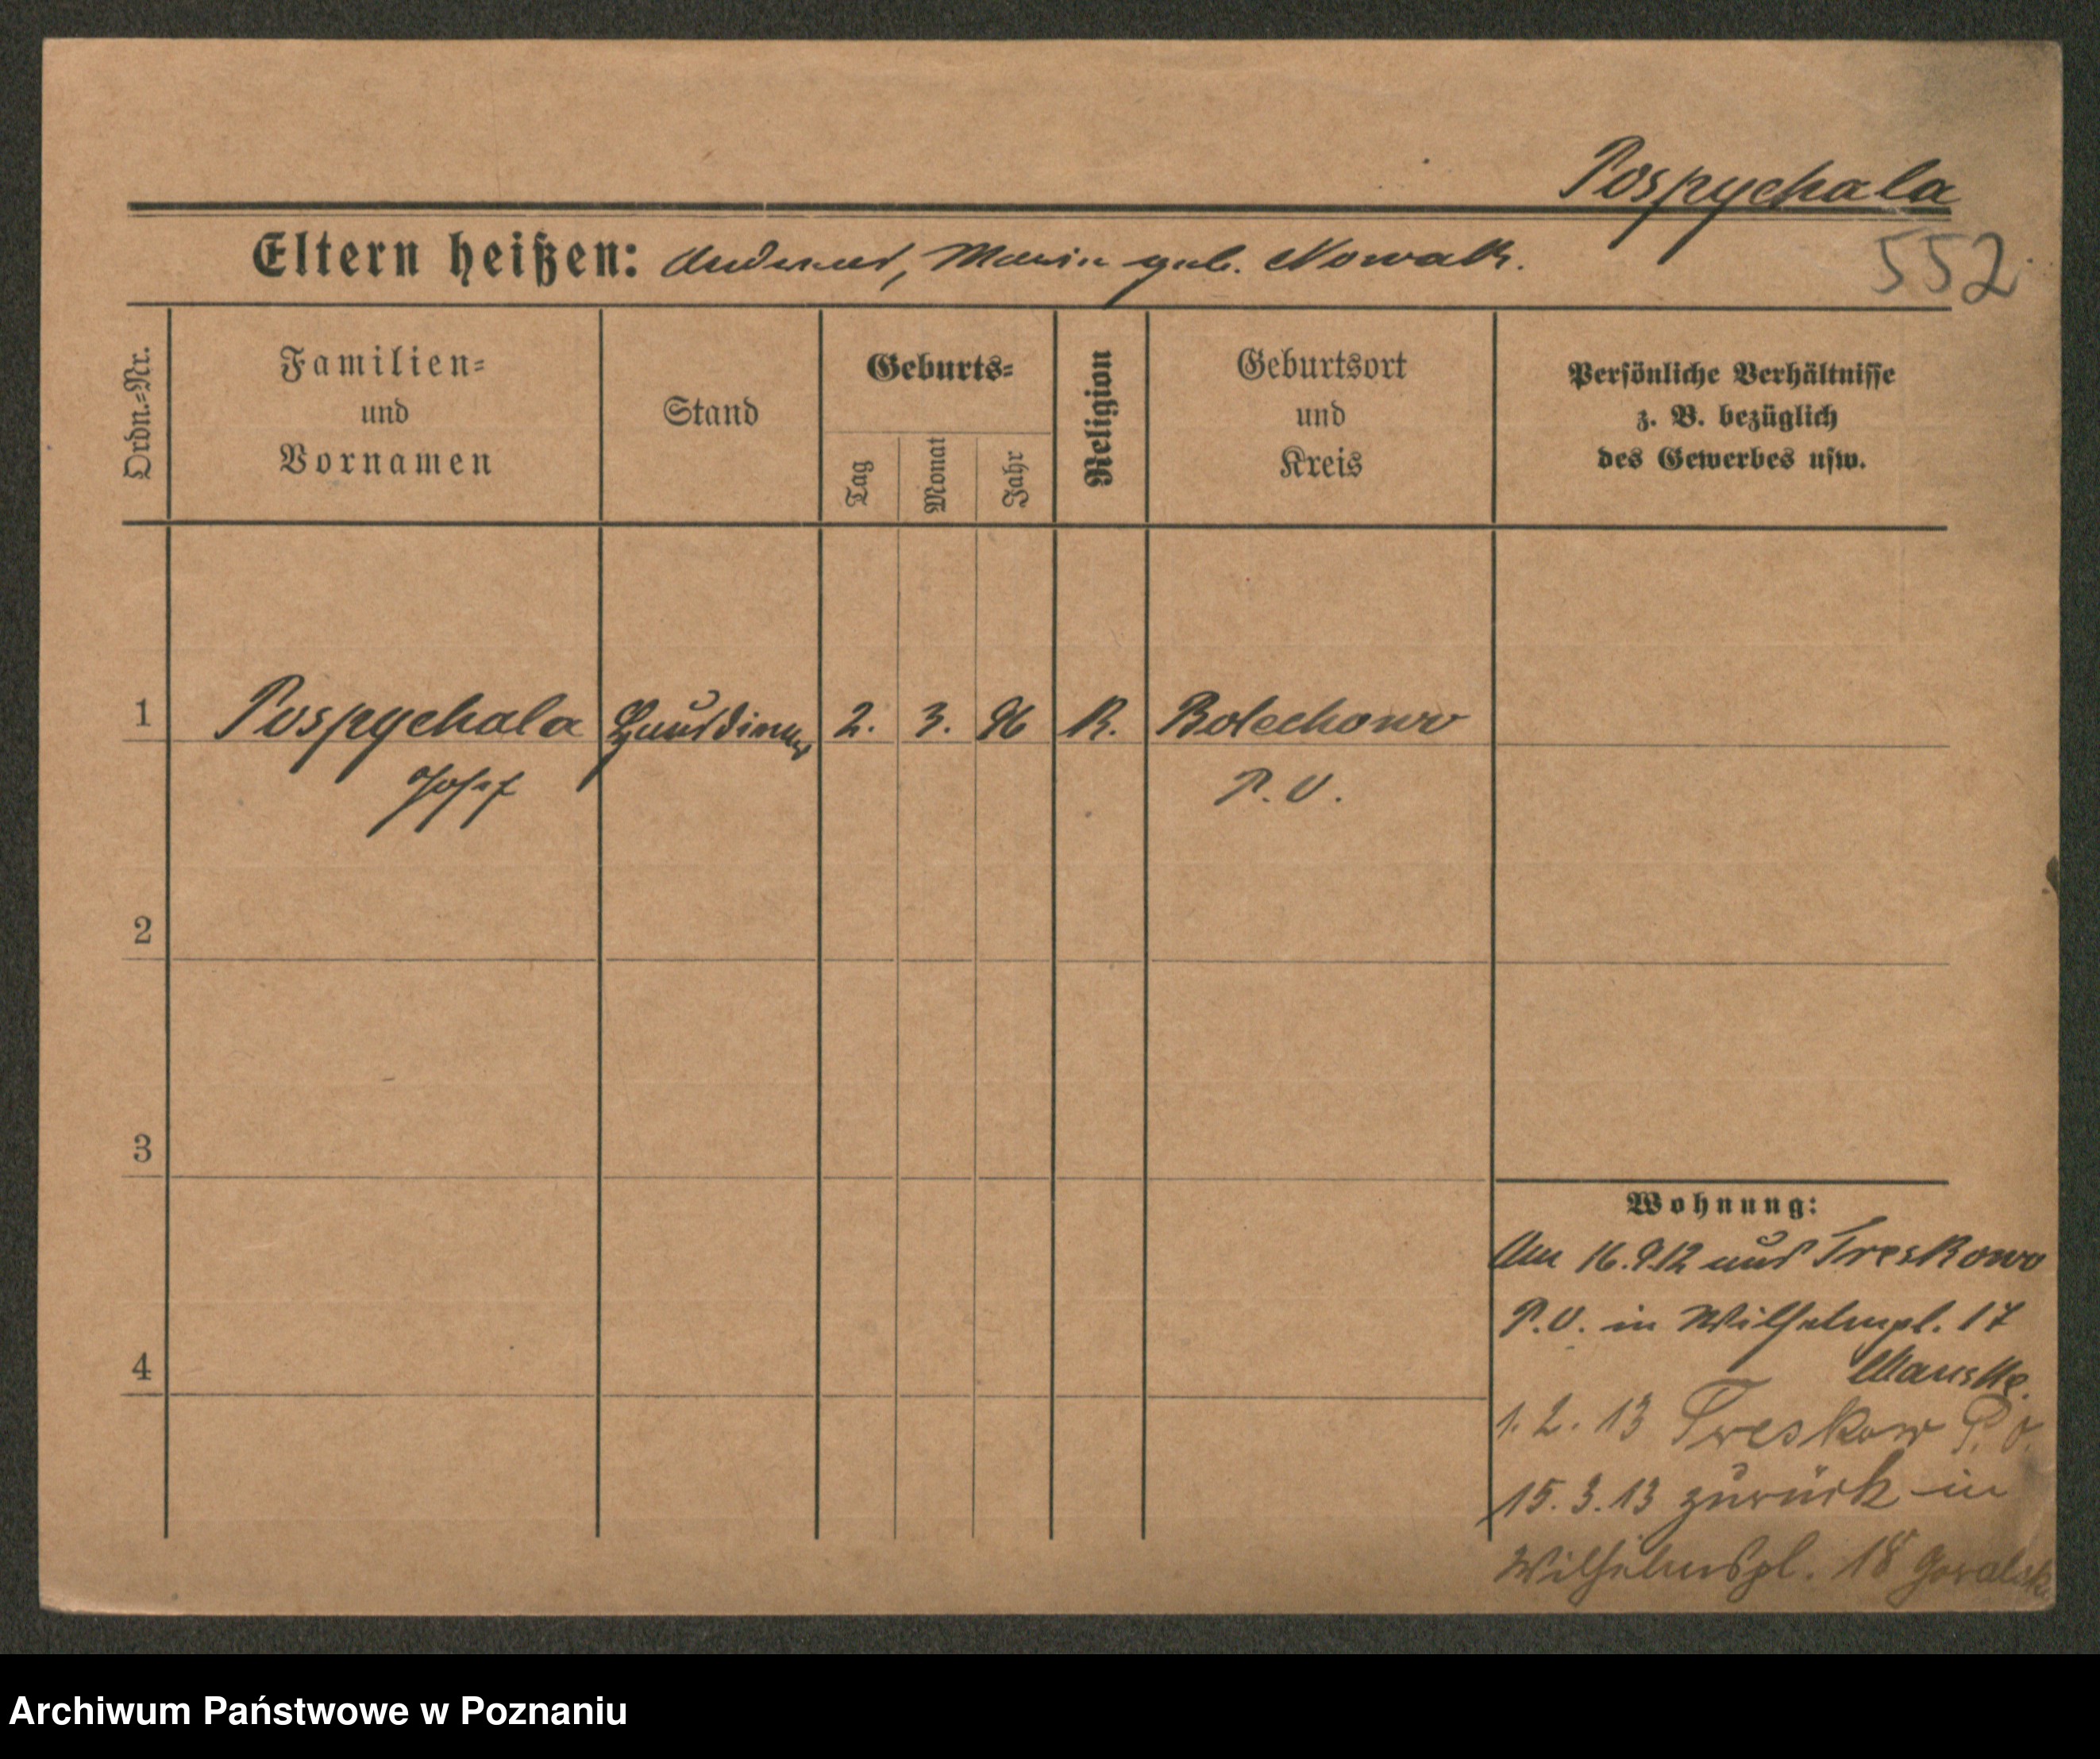 Pospychala
552
Eltern heißen: Andreas, Maria geb. Nowak.
Ordn.=Nr.
Familien=
und
Vornamen
Stand
Geburts=
Tag
Monat
Jahr
Religion
Geburtsort
und
Kreis
Persönliche Verhältnisse
z. B. bezüglich
des Gewerbes usw.
1 Pospychala Hausdiener 2. 3. 96 K. Bolechowo
Josef P. O.
2
3
4
Wohnung:
Am 16.9.12 aus Treskowo
P.O. in Wilhelmpl. 17
1.2.13 Treskow P. O.
15.3.13 zurück in
Wilhelmspl. 18
Archiwum Państwowe w Poznaniu